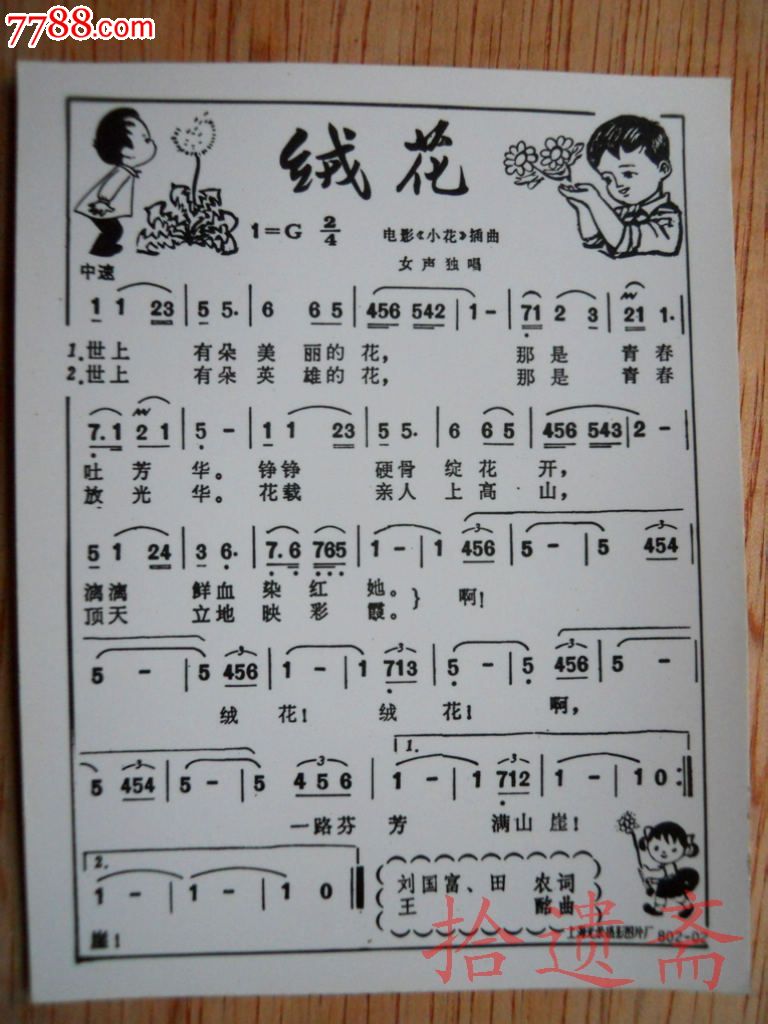 7788.com
绒花
1=G 2/4 电影《小花》插曲
女声独唱
中速
1 1 23 | 5 5· | 6 6 5 | 456 542 | 1 - | 71 2 3 | 21 1·
1.世上 有朵美丽的花, 那是青春
2.世上 有朵英雄的花, 那是青春
7·1 2 1 | 5 - | 1 1 23 | 5 5· | 6 6 5 | 456 543 | 2 -
吐芳华。铮铮 硬骨绽花开,
放光华。花载 亲人上高山,
5 1 24 | 3 6· | 7·6 765 | 1 - | 1 456 | 5 - | 5 454
漓漓 鲜血染红她。} 啊!
顶天 立地映彩霞。
5 - | 5 456 | 1 - | 1 713 | 5 - | 5 456 | 5 -
绒花! 绒花! 啊,
1.
5 454 | 5 - | 5 4 5 6 | 1 - | 1 712 | 1 - | 1 0 :||
一路芬芳 满山崖!
2.
1 - | 1 - | 1 0 ||
崖!
刘国富、田 农词
王 酩曲
802-02
拾遗斋